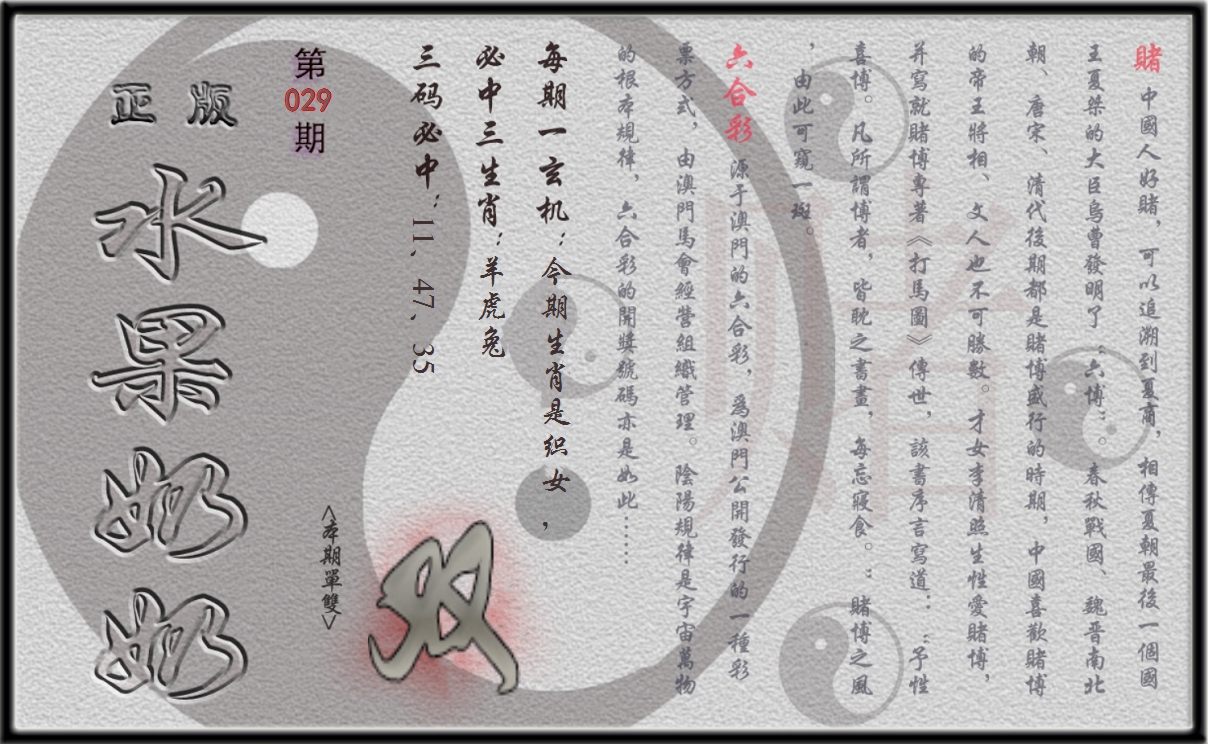 賭 中國人好賭，可以追溯到夏商，相傳夏朝最後一個國
王夏桀的大臣烏曹發明了“六博”。春秋戰國、魏晉南北
朝、唐宋、清代後期都是賭博盛行的時期，中國喜歡賭博
的帝王將相、文人也不可勝數。才女李清照生性愛賭博，
并寫就賭博專著《打馬圖》傳世，該書序言寫道：“予性
喜博。凡所謂博者，皆眈之書畫，每忘寢食。：賭博之風
，由此可窺一斑。
六合彩 源于澳門的六合彩，爲澳門公開發行的一種彩
票方式，由澳門馬會經營組織管理。陰陽規律是宇宙萬物
的根本規律，六合彩的開獎號碼亦是如此……
每期一玄机：今期生肖是织女，
必中三生肖：羊虎兔
三码必中：11、47、35
第
029
期
<本期單雙>
双
正版
水果奶奶
賭